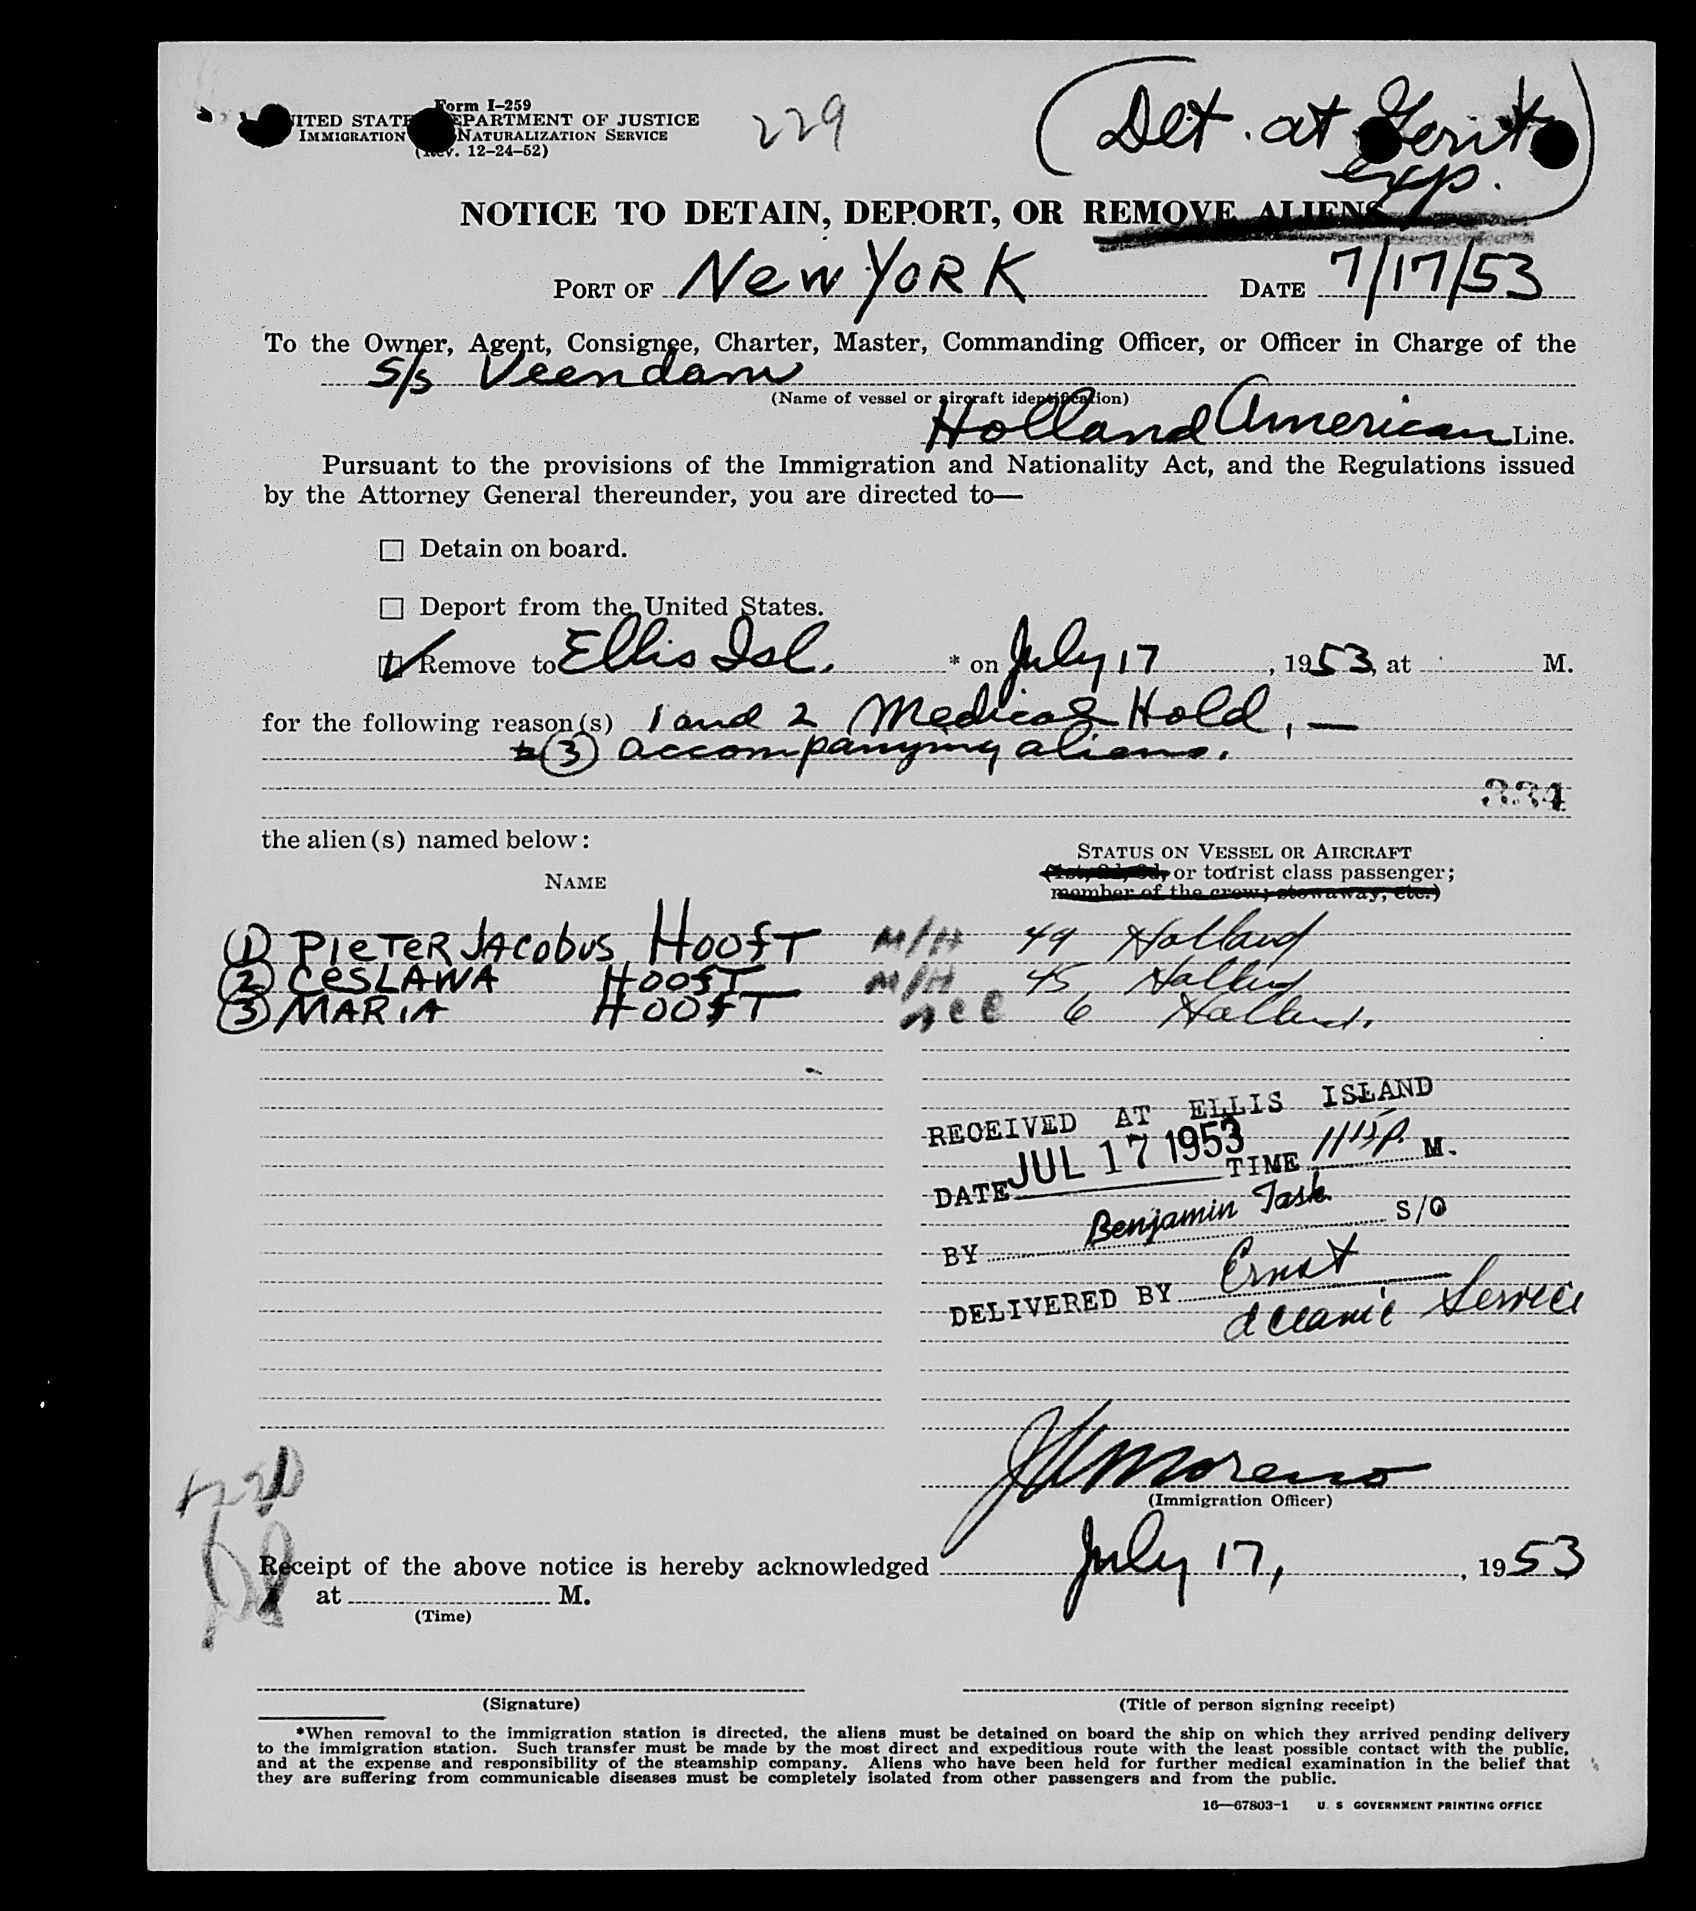 Form I-259
UNITED STATES DEPARTMENT OF JUSTICE
IMMIGRATION NATURALIZATION SERVICE
(Rev. 12-24-52)
229
(Det. at Govt
exp.)
NOTICE TO DETAIN, DEPORT, OR REMOVE ALIENS
PORT OF New York DATE 7/17/53
To the Owner, Agent, Consignee, Charter, Master, Commanding Officer, or Officer in Charge of the
S/s Veendam
(Name of vessel or aircraft identification)
Holland American Line.
Pursuant to the provisions of the Immigration and Nationality Act, and the Regulations issued
by the Attorney General thereunder, you are directed to—
☐ Detain on board.
☐ Deport from the United States.
☑ Remove to Ellis Isl. * on July 17, 1953, at M.
for the following reason(s) 1 and 2 Medical Hold, —
(3) accompanying aliens.
334
the alien(s) named below:
NAME
STATUS ON VESSEL OR AIRCRAFT
(1st, 2d, 3d, or tourist class passenger;
member of the crew; stowaway, etc.)
(1) PIETER JACOBUS HOOFT M/H 49 Holland
(2) CESLAWA HOOFT M/H 45 Holland
(3) MARIA HOOFT acc 6 Holland.
RECEIVED AT ELLIS ISLAND
DATE JUL 17 1953 TIME 115 P. M.
BY Benjamin Task S/O
DELIVERED BY Ernst
Oceanic Service
Moreno
(Immigration Officer)
Receipt of the above notice is hereby acknowledged July 17, , 1953
at M.
(Time)
(Signature)
(Title of person signing receipt)
*When removal to the immigration station is directed, the aliens must be detained on board the ship on which they arrived pending delivery
to the immigration station. Such transfer must be made by the most direct and expeditious route with the least possible contact with the public,
and at the expense and responsibility of the steamship company. Aliens who have been held for further medical examination in the belief that
they are suffering from communicable diseases must be completely isolated from other passengers and from the public.
16—67803-1 U. S GOVERNMENT PRINTING OFFICE